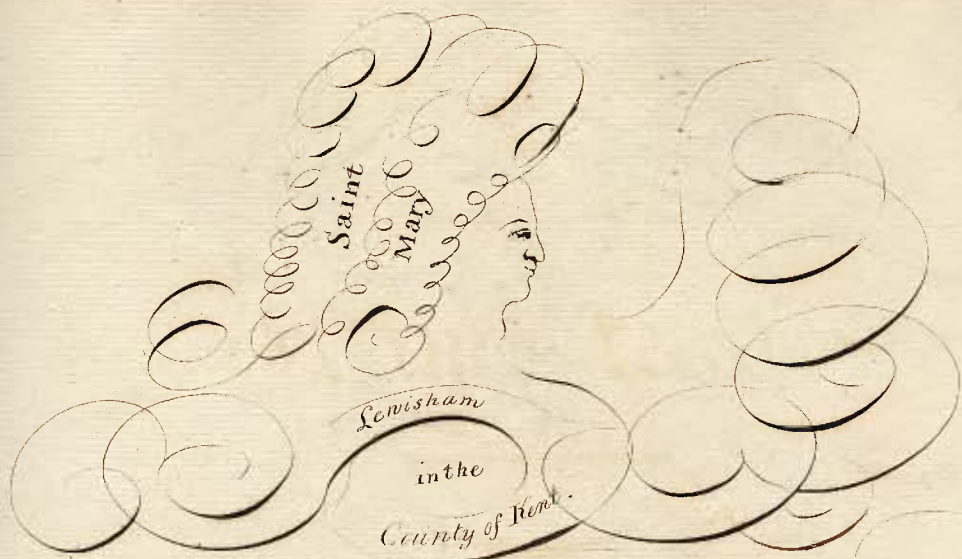 Saint
Mary
Lewisham
in the
County of Kent.